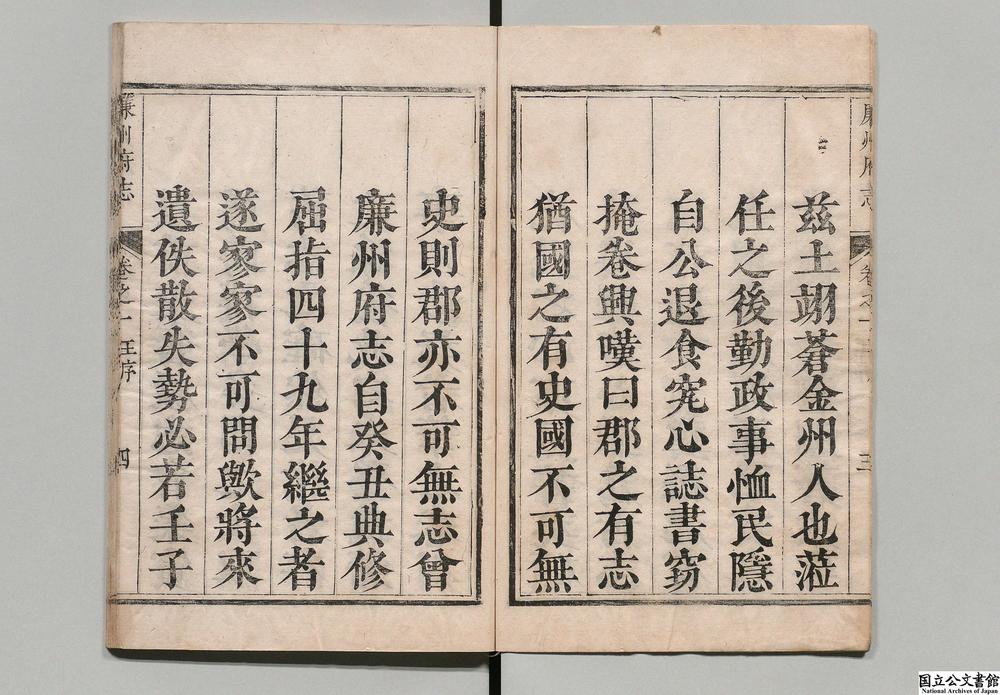 廉州府志
卷之一
三
兹土翊蒼金州人也蒞
任之後勤政事恤民隱
自公退食究心誌書窃
掩卷興嘆曰郡之有志
猶國之有史國不可無
史則郡亦不可無志曾
廉州府志自癸丑典修
屈指四十九年繼之者
遂寥寥不可問歟將來
遺佚散失勢必若壬子
廉州府志
卷之一
王序
四
国立公文書館
National Archives of Japan